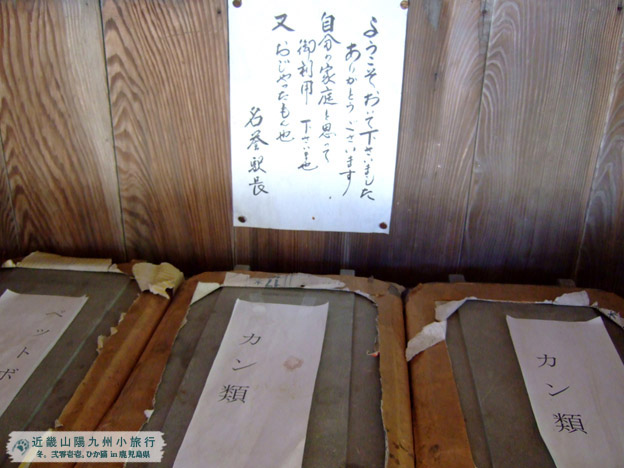 ようこそおいで下さいました
ありがとうございます
自分の家庭と思って
御利用 下さいませ
又
おじゃったもんせ
名誉駅長
ペットボ
カン類
カン類
近畿山陽九州小旅行
冬。弐零壱壱。ひか猫 in 鹿児島県